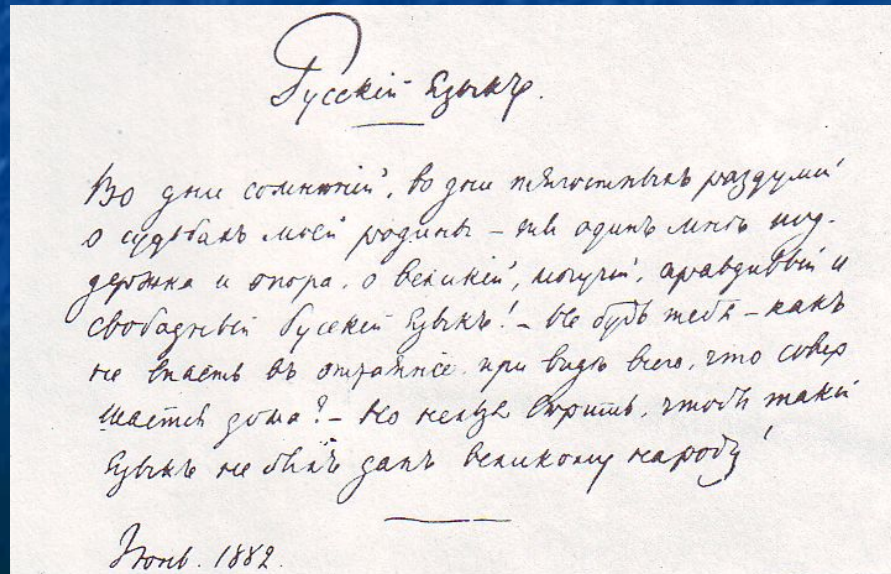 Русскій Языкъ.
Во дни сомнѣній, во дни тягостныхъ раздумій
о судьбахъ моей родины – ты одинъ мнѣ под-
держка и опора, о великій, могучій, правдивый и
свободный Русскій Языкъ! – Не будь тебя – какъ
не впасть въ отчаяніе при видѣ всего, что совер
шается дома? – Но нельзя вѣрить, чтобы такой
языкъ не былъ данъ великому народу!
Июнь. 1882.